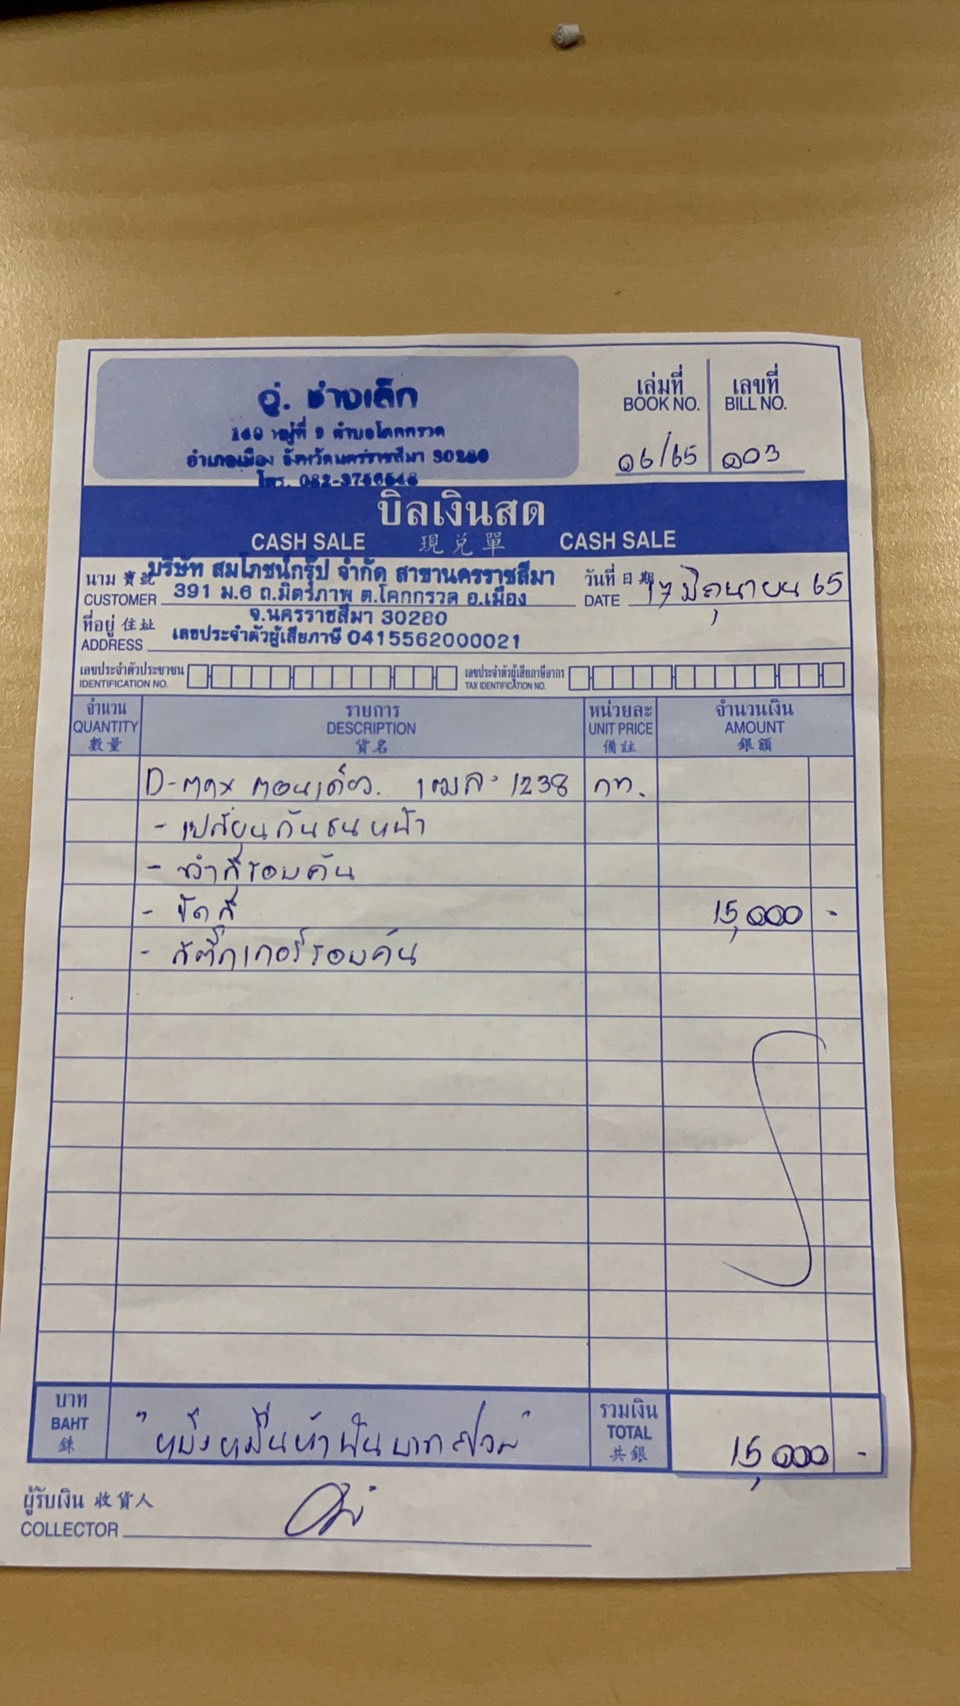 อู่. ช่างเล็ก
140 หมู่ที่ 9 ตำบลโคกกรวด
อำเภอเมือง จังหวัดนครราชสีมา 30280
โทร. 082-3756648
เล่มที่ เลขที่
BOOK NO. BILL NO.
06/65 003
บิลเงินสด
CASH SALE 現兌單 CASH SALE
นาม 寶號 บริษัท สมโภชน์กรุ๊ป จำกัด สาขานครราชสีมา
CUSTOMER 391 ม.6 ถ.มิตรภาพ ต.โคกกรวด อ.เมือง
วันที่ 日期 17 มิถุนายน 65
DATE
ที่อยู่ 住址 จ.นครราชสีมา 30280
ADDRESS เลขประจำตัวผู้เสียภาษี 0415562000021
เลขประจำตัวประชาชน เลขประจำตัวผู้เสียภาษีอากร
IDENTIFICATION NO. TAX IDENTIFICATION NO.
จำนวน รายการ หน่วยละ จำนวนเงิน
QUANTITY DESCRIPTION UNIT PRICE AMOUNT
數量 貨名 備註 銀額
D-max ตอนเดียว. 1ฒล. 1238 กท.
- เปลี่ยนกันชนหน้า
- ทำสีรอบคัน
- ขัดสี 15,000 -
- สติ๊กเกอร์รอบคัน
บาท "หนึ่งหมื่นห้าพันบาทถ้วน" รวมเงิน
BAHT TOTAL 15,000 -
銖 共銀
ผู้รับเงิน 收貨人
COLLECTOR